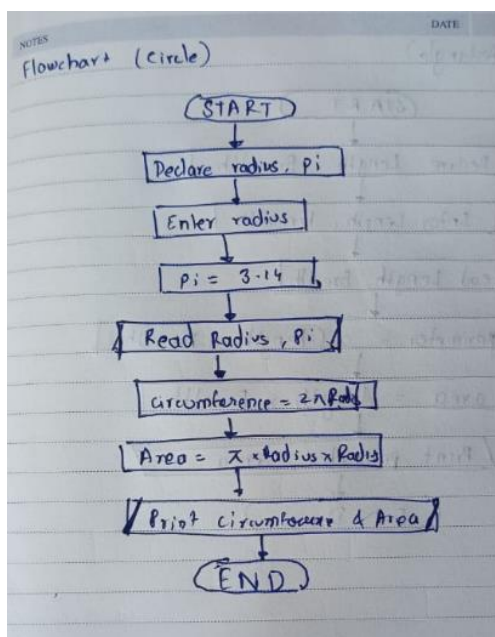 DATE
NOTES
Flowchart (Circle)
START
Declare radius, Pi
Enter radius
Pi = 3.14
Read Radius, Pi
Circumference = 2π Radi
Area = π × Radius × Radius
Print Circumference & Area
END